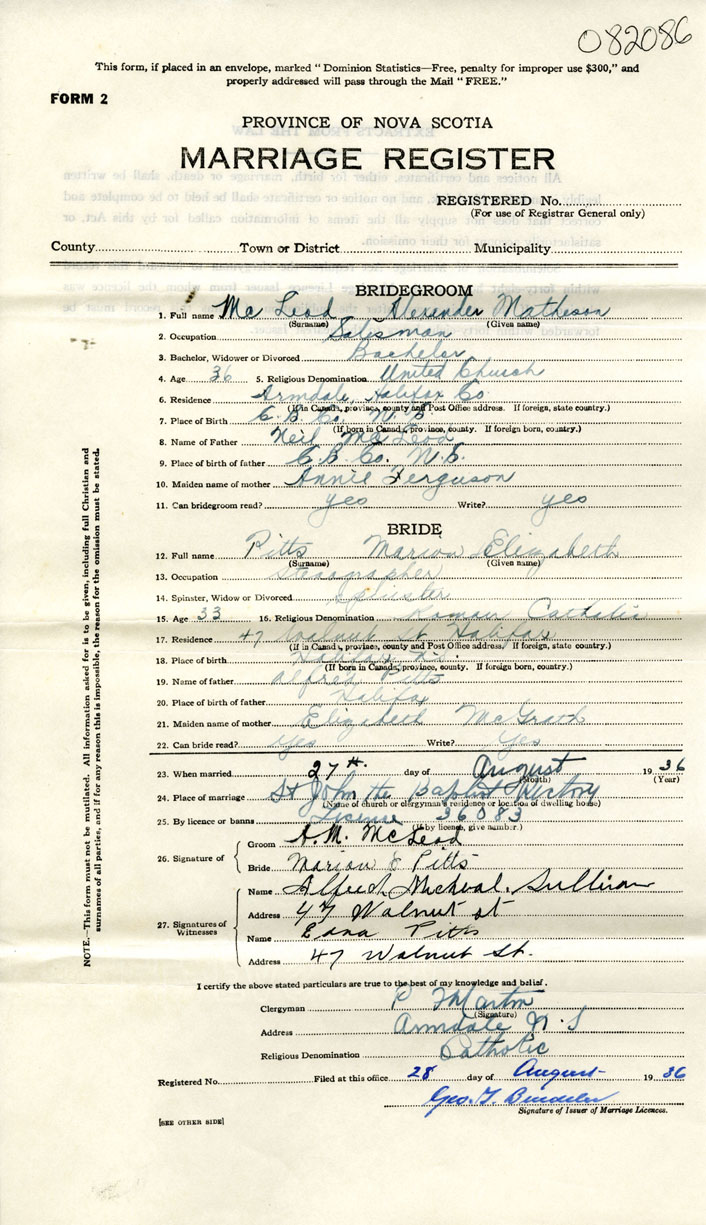 082086
This form, if placed in an envelope, marked "Dominion Statistics—Free, penalty for improper use $300," and
properly addressed will pass through the Mail "FREE."
FORM 2
PROVINCE OF NOVA SCOTIA
MARRIAGE REGISTER
REGISTERED No.
(For use of Registrar General only)
County Town or District Municipality
BRIDEGROOM
1. Full name Mc Leod Alexander Matheson
(Surname) (Given name)
2. Occupation Salesman
3. Bachelor, Widower or Divorced Bachelor
4. Age 36 5. Religious Denomination United Church
6. Residence Armdale, Halifax Co
(If in Canada, province, county and Post Office address. If foreign, state country.)
7. Place of Birth C.B. Co. N.S.
(If born in Canada, province, county. If foreign born, country.)
8. Name of Father Neil McLeod
9. Place of birth of father C.B. Co. N.S.
10. Maiden name of mother Annie Ferguson
11. Can bridegroom read? yes Write? yes
BRIDE
12. Full name Pitts Marion Elizabeth
(Surname) (Given name)
13. Occupation Stenographer
14. Spinster, Widow or Divorced Spinster
15. Age 33 16. Religious Denomination Roman Catholic
17. Residence 47 Walnut St Halifax
(If in Canada, province, county and Post Office address. If foreign, state country.)
18. Place of birth Halifax N.S.
(If born in Canada, province, county. If foreign born, country.)
19. Name of father Alfred Pitts
20. Place of birth of father Halifax
21. Maiden name of mother Elizabeth McGrath
22. Can bride read? yes Write? yes
23. When married 27th. day of August 1936
(Month) (Year)
24. Place of marriage St John the Baptist Rectory
(Name of church or clergyman's residence or location of dwelling house)
25. By licence or banns License 36083
(If by licence, give number.)
26. Signature of
Groom A.M. McLeod
Bride Marion E Pitts
27. Signatures of Witnesses
Name Alfred Micheal. Sullivan
Address 47 Walnut st
Name Edna Pitts
Address 47 Walnut St.
I certify the above stated particulars are true to the best of my knowledge and belief.
Clergyman P Martin
(Signature)
Address Armdale N.S
Religious Denomination Catholic
Registered No. Filed at this office 28 day of August 1936
Geo. T.
Signature of Issuer of Marriage Licences.
[SEE OTHER SIDE]
NOTE.—This form must not be mutilated. All information asked for is to be given, including full Christian and
surnames of all parties, and if for any reason this is impossible, the reason for the omission must be stated.